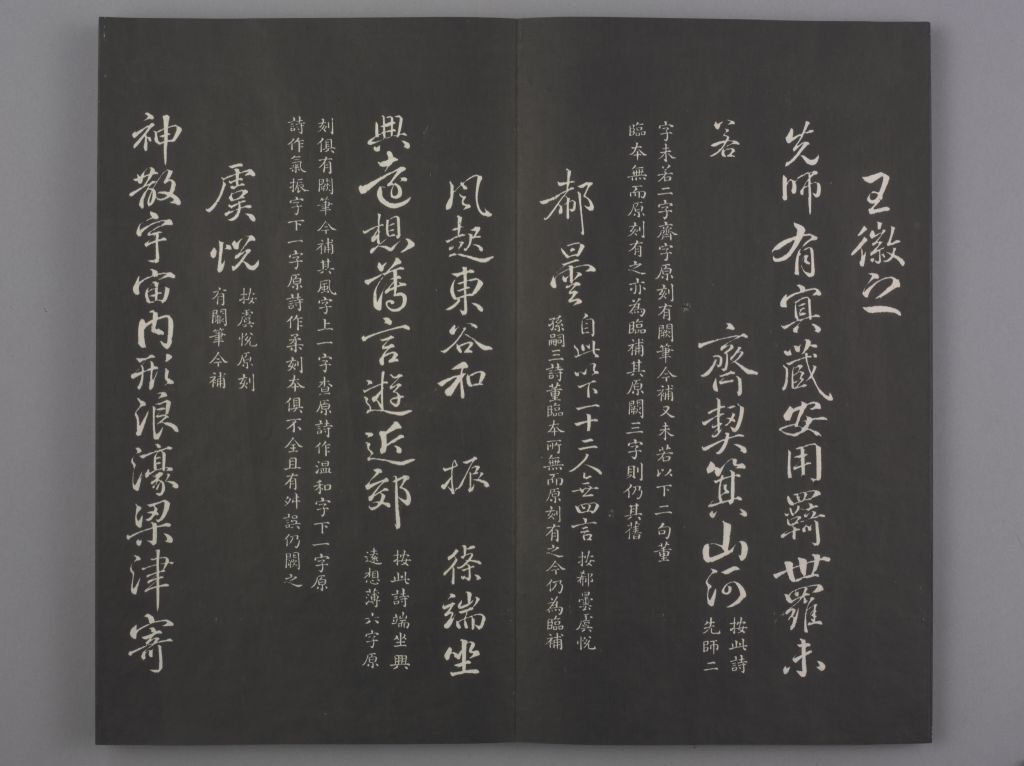 王徽之
先師有冥藏安用羈世羅未
若　齊契箕山河
按此詩
先師二
字未若二字齊字原刻有闕筆今補又未若以下二句董
臨本無而原刻有之亦為臨補其原闕三字則仍其舊
郗曇
自此以下一十二人亝四言
按郗曇虞悅
孫嗣三詩董臨本所無而原刻有之今仍為臨補
風起東谷和　振　篠端坐
興遠想薄言遊近郊
按此詩端坐興
遠想薄六字原
刻俱有闕筆今補其風字上一字查原詩作温和字下一字原
詩作氣振字下一字原詩作柔刻本俱不全且有舛誤仍闕之
虞悅
按虞悅原刻
有闕筆今補
神散宇宙內形浪濠梁津寄